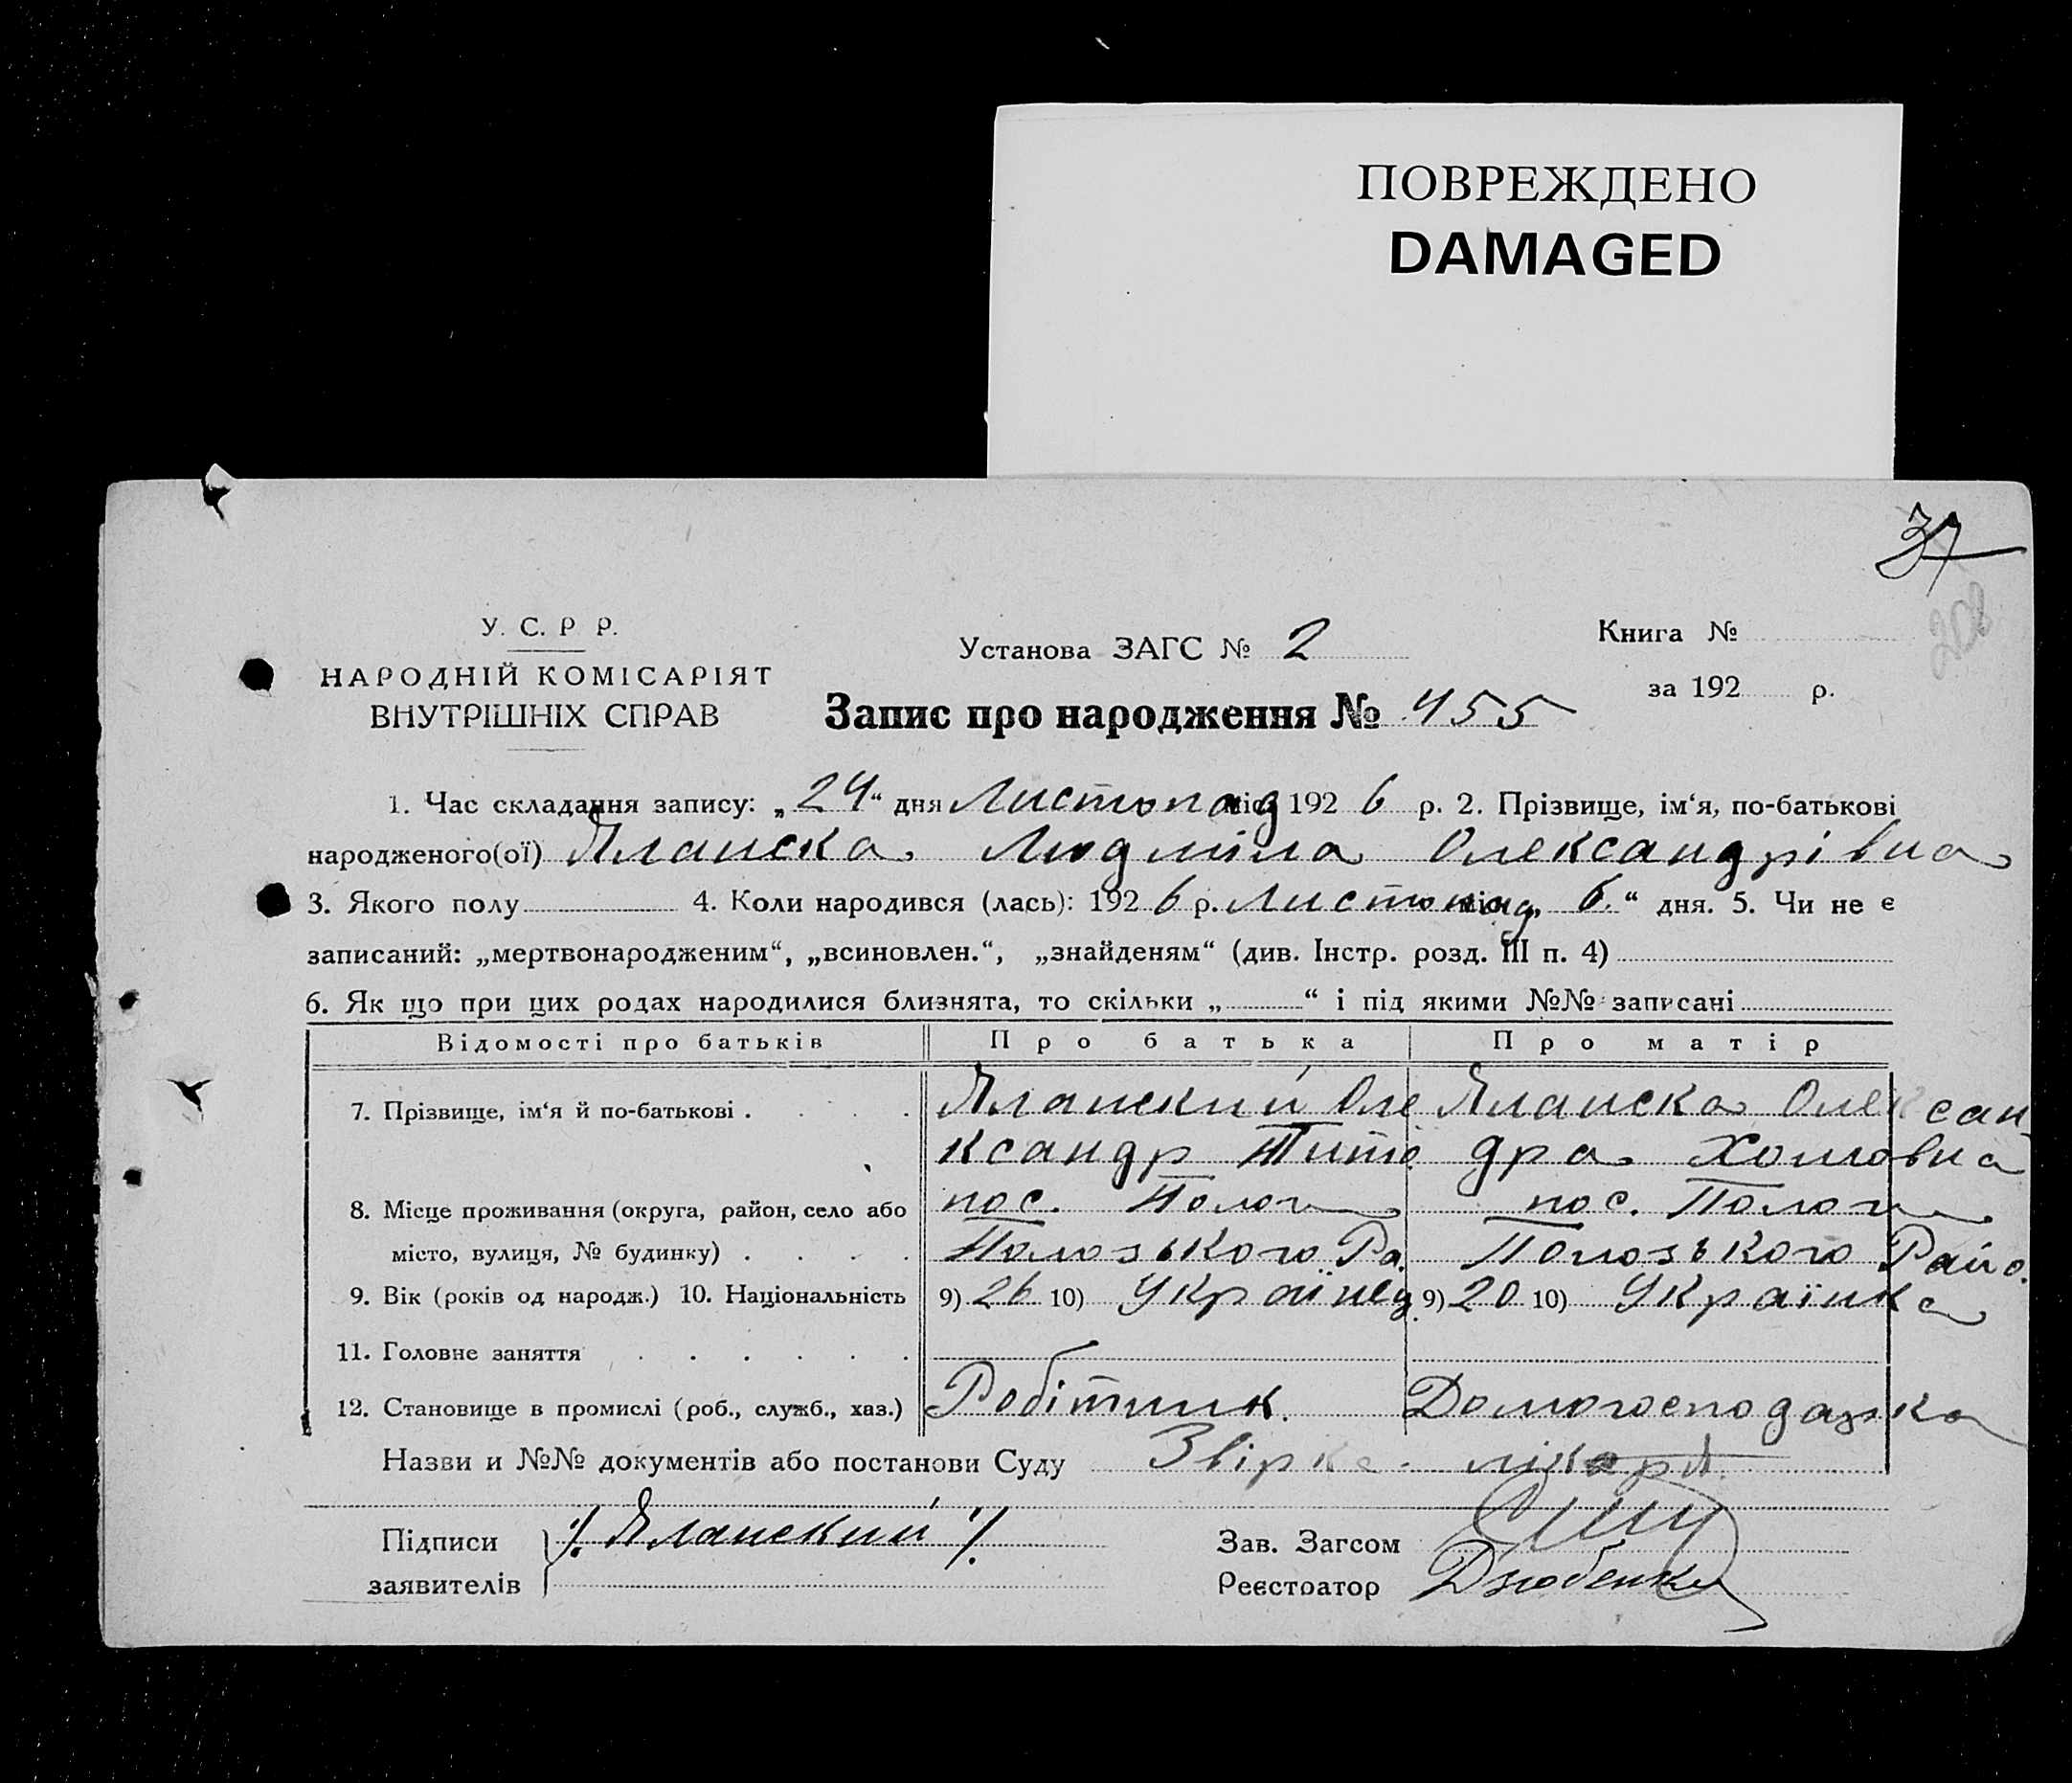 ПОВРЕЖДЕНО
DAMAGED
37
208
У. С. Р Р.
НАРОДНІЙ КОМІСАРІЯТ
ВНУТРІШНІХ СПРАВ
Установа ЗАГС № 2
Книга №
за 192 р.
Запис про народження № 455
1. Час складання запису: „24“ дня Листопад міс. 192 6 р. 2. Прізвище, ім‘я, по-батькові
народженого(ої) Яланска Людміла Олександрівна
3. Якого полу 4. Коли народився (лась): 192 6 р. Листопад міс. „ 6. “ дня. 5. Чи не є
записаний: „мертвонародженим“, „всиновлен.“, „знайденям“ (див. Інстр. розд. III п. 4)
6. Як що при цих родах народилися близнята, то скільки „ “ і під якими №№ записані
Відомості про батьків Про батька Про матір
7. Прізвище, ім‘я й по-батькові . . . . Яланский Оле Яланска Олексан
ксандр Тито дра Хомовна
8. Місце проживання (округа, район, село або пос. Пологи пос. Пологи
місто, вулиця, № будинку) . . . . Пологзького Ра. Пологзького Райо.
9. Вік (років од народж.) 10. Національність 9) 26 10) Українец. 9) 20 10) Українка
11. Головне заняття . . . . . .
12. Становище в промислі (роб., служб., хаз.) Робітник. Домогосподарка
Назви и №№ документів або постанови Суду Звірка лікаря.
Підписи
заявителів
/. Яланский ./
Зав. Загсом
Реєстратор Дзюбенко